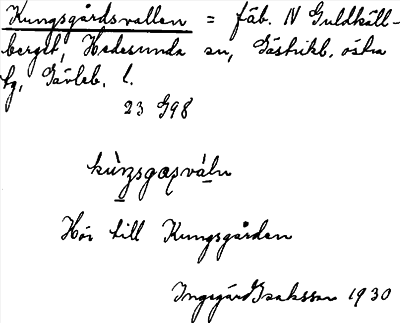 Kungsgårdsvallen = fäb. N Guldkäll-
berget, Hedesunda sn, Gästrikl. östra
tg, Gävleb. l.
23 G98
Hör till Kungsgården
Ingegärd Isaksson 1930